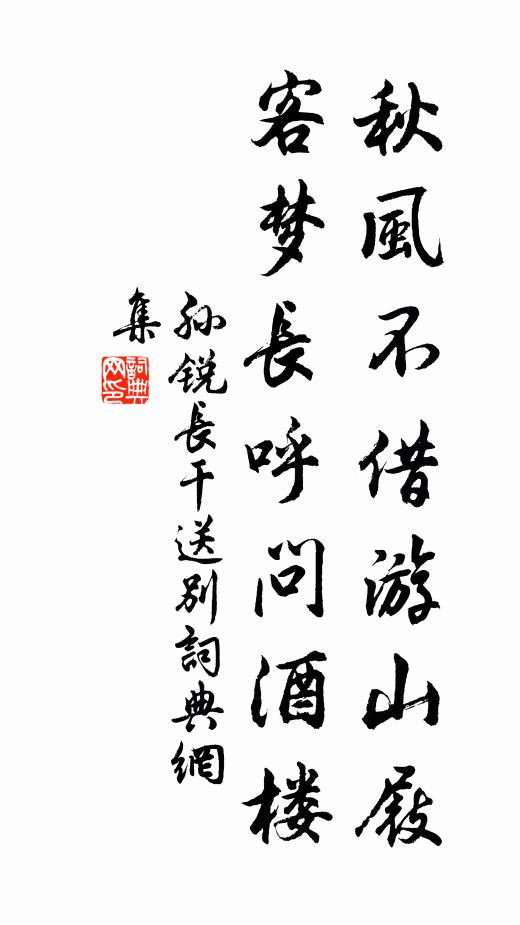 秋風不借游山屐
客梦長呼問酒楼
孙銳長干送别詞典網
集
詞典网印